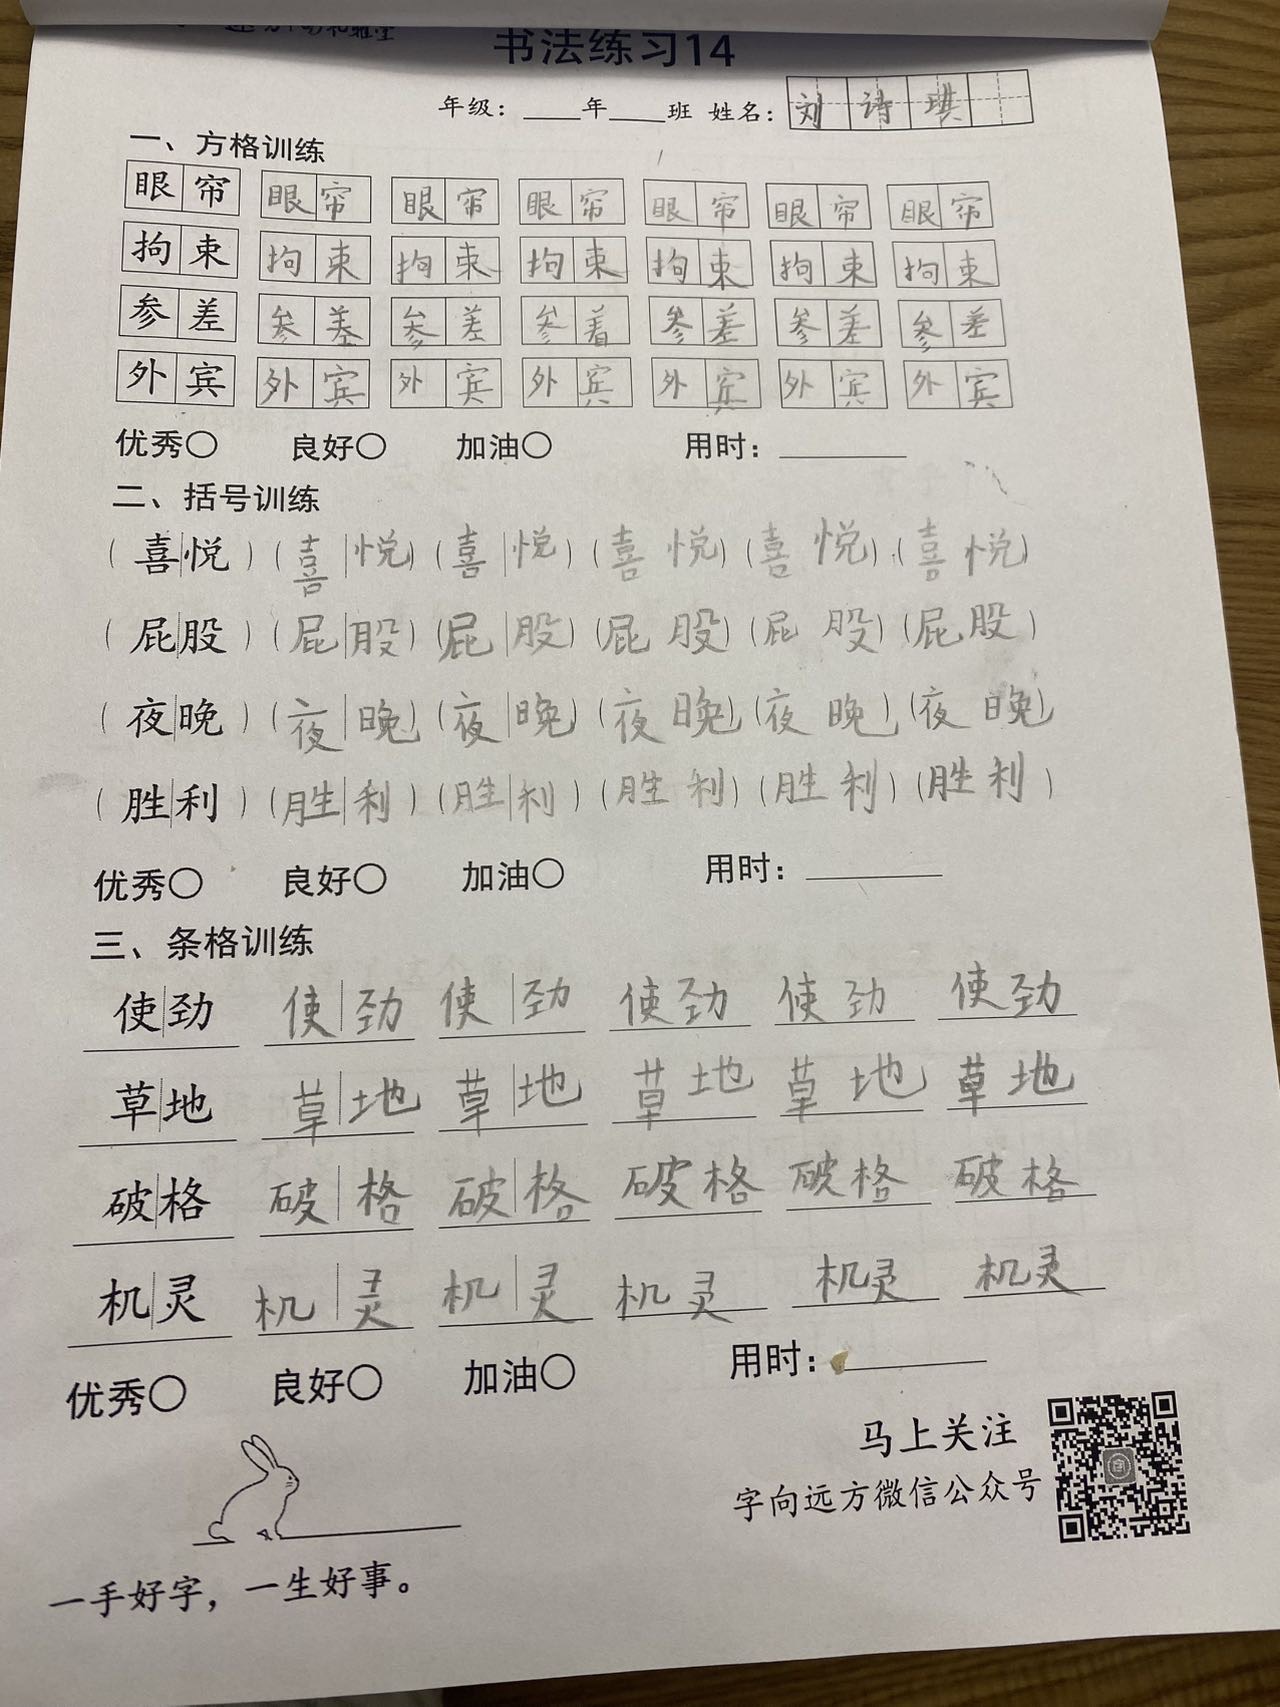 书法练习14
年级：____年____班 姓名：刘诗琪
一、方格训练
眼帘 眼帘 眼帘 眼帘 眼帘 眼帘 眼帘
拘束 拘束 拘束 拘束 拘束 拘束 拘束
参差 参差 参差 参着 参差 参差 参差
外宾 外宾 外宾 外宾 外宾 外宾 外宾
优秀○ 良好○ 加油○ 用时：______
二、括号训练
（喜|悦）（喜|悦）（喜|悦）（喜 悦）（喜 悦）（喜 悦）
（屁|股）（屁|股）（屁|股）（屁 股）（屁 股）（屁 股）
（夜|晚）（夜|晚）（夜|晚）（夜 晚）（夜 晚）（夜 晚）
（胜|利）（胜|利）（胜|利）（胜 利）（胜 利）（胜 利）
优秀○ 良好○ 加油○ 用时：______
三、条格训练
使|劲 使|劲 使|劲 使劲 使劲 使劲
草|地 草|地 草|地 草地 草地 草地
破|格 破|格 破|格 破格 破格 破格
机|灵 机|灵 机|灵 机灵 机灵 机灵
优秀○ 良好○ 加油○ 用时：______
马上关注
字向远方微信公众号
一手好字，一生好事。